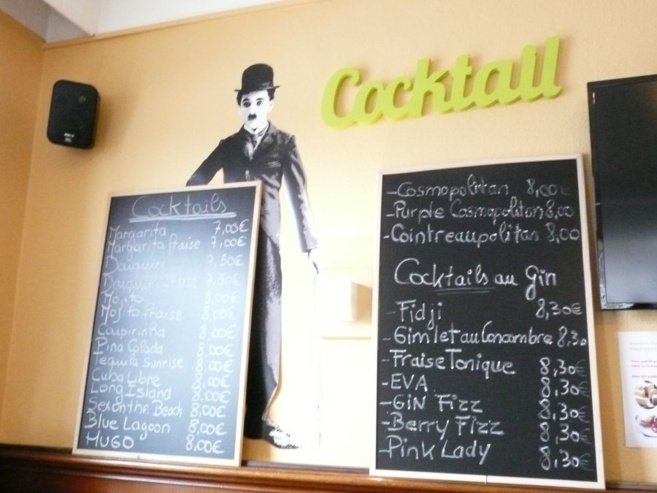 Cocktail
Cocktails
Margarita 7,00€
Margarita fraise 7,00€
7,50€
7,50€
Mojito 8,00€
Mojito fraise 8,00€
Caïpirinha 8,00€
Pina Colada 8,00€
Tequila Sunrise 8,00€
Cuba Libre 8,00€
Long Island 8,00€
Sex on the Beach 8,00€
Blue Lagoon 8,00€
HUGO 8,00€
-Cosmopolitan 8,00€
-Purple Cosmopolitan 8,00
-Cointreaupolitan 8,00
Cocktails au Gin
-Fidji 8,30€
-Gimlet au Concombre 8,30
-Fraise Tonique 8,30€
-EVA 8,30€
-GiN Fizz 8,30€
-Berry Fizz 8,30€
-Pink Lady 8,30€